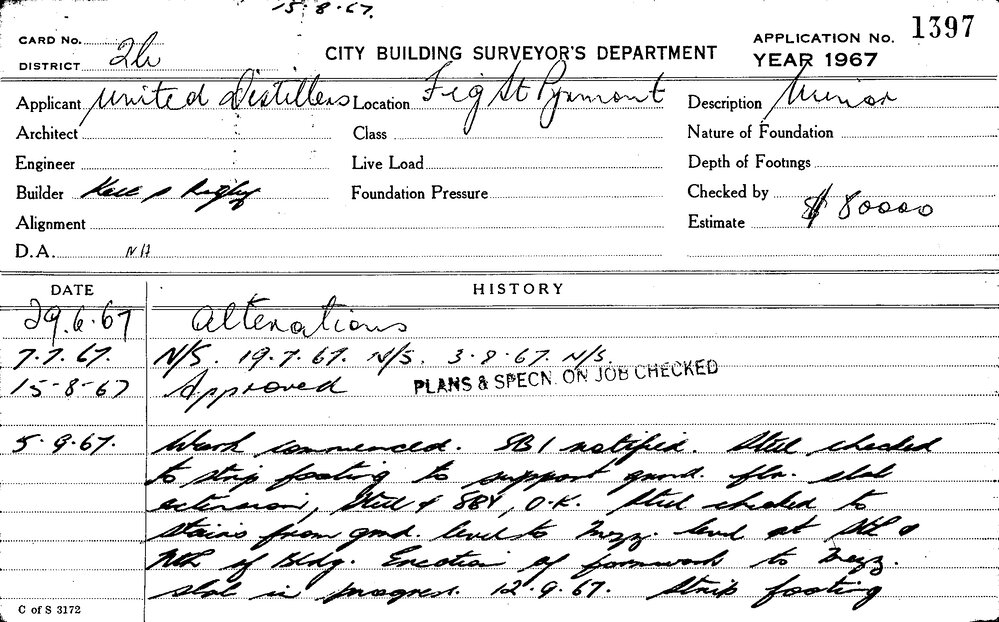 15-8-67.
CARD No.
DISTRICT 2b
CITY BUILDING SURVEYOR'S DEPARTMENT
APPLICATION No. 1397
YEAR 1967
Applicant United Distillers Location Fig St Pyrmont Description Minor
Architect Class Nature of Foundation
Engineer Live Load Depth of Footings
Builder Kell & Rigby Foundation Pressure Checked by
Alignment Estimate $ 80000
D.A. NA
DATE HISTORY
29.6.67 Alterations
7.7.67. N/S. 19.7.67. N/S. 3.8.67. N/S.
15-8-67 Approved PLANS & SPECN. ON JOB CHECKED
5.9.67. Work commenced. SB1 notified. Steel checked
to strip footing to support grnd. flr. slab
extension, Steel & , O.K. Steel checked to
stairs from grnd. level to Mezz. level at Sth &
Nth of Bldg. Erection of formwork to Mezz.
slab in progress. 12.9.67. Strip footing
C of S 3172